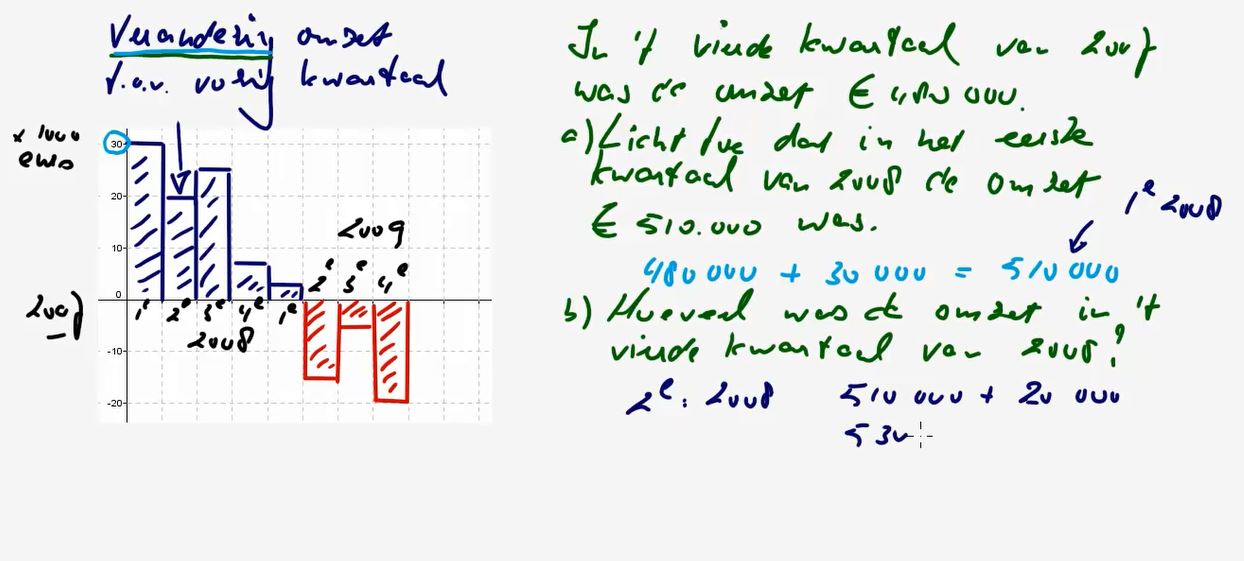 Verandering omzet
t.o.v. vorig kwartaal
x 1000
euro
30
20
10
0
-10
-20
2007
1e 2e 3e 4e 1e
2008
2009
2e 3e 4e
In 't vierde kwartaal van 2007
was de omzet € 480 000.
a) Licht toe dat in het eerste
kwartaal van 2008 de omzet
€ 510.000 was.
1e 2008
480 000 + 30 000 = 510 000
b) Hoeveel was de omzet in 't
vierde kwartaal van 2008?
2e: 2008 510 000 + 20 000
530